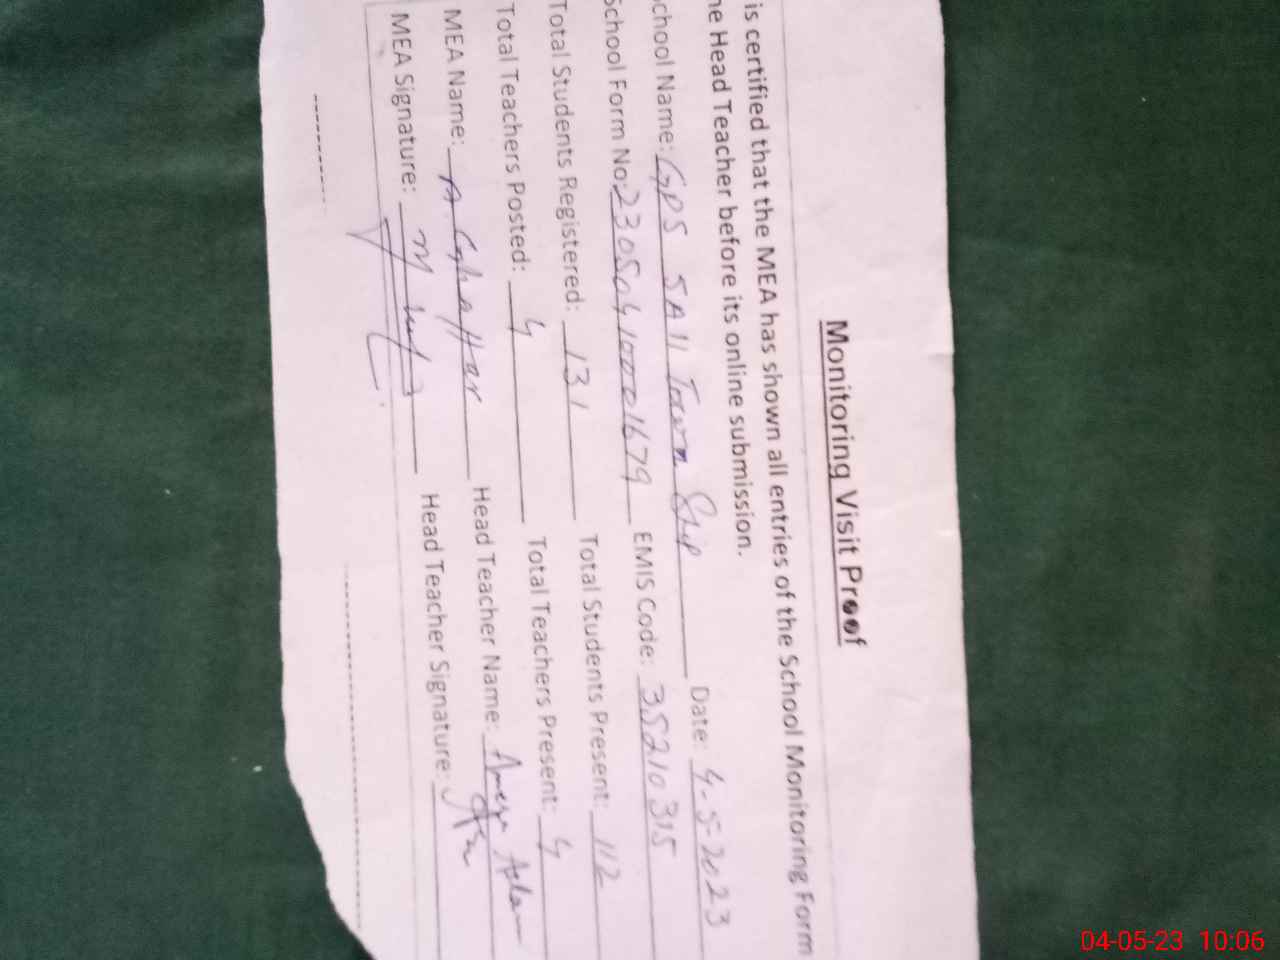 Monitoring Visit Proof
is certified that the MEA has shown all entries of the School Monitoring Form
he Head Teacher before its online submission.
chool Name: GPS 5A11 Town Ship Date: 4-5-2023
School Form No: 230504100001679 EMIS Code: 35210315
Total Students Registered: 131 Total Students Present: 112
Total Teachers Posted: 4 Total Teachers Present: 4
MEA Name: A Ghaffar Head Teacher Name: Aslam
MEA Signature: Head Teacher Signature:
04-05-23 10:06